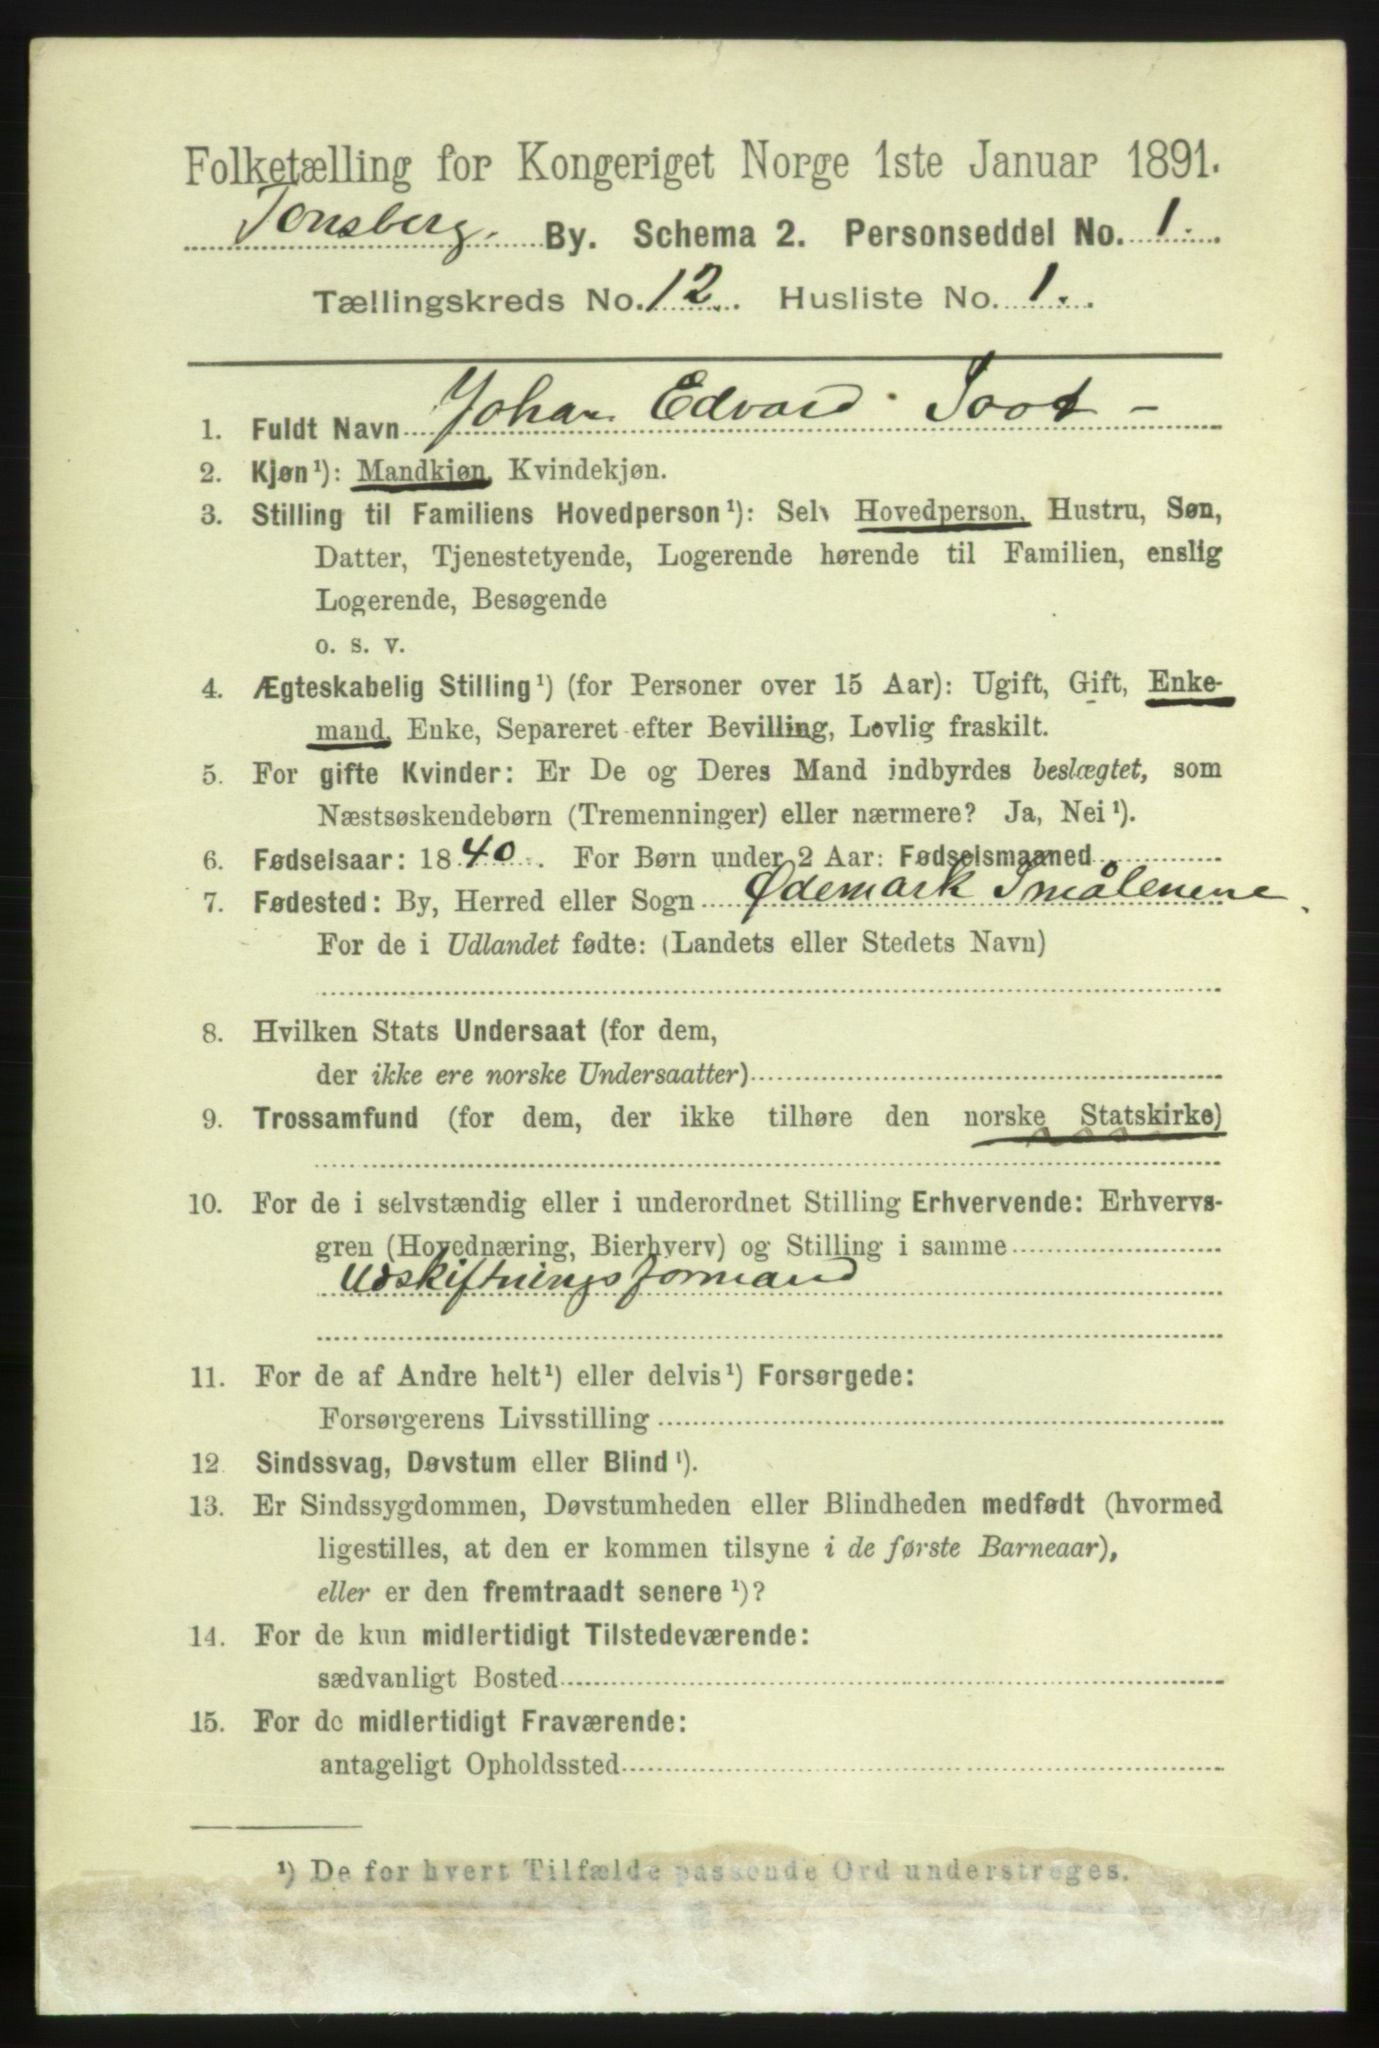 Folketælling for Kongeriget Norge 1ste Januar 1891.
Tønsberg. By. Schema 2. Personseddel No. 1.
Tællingskreds No. 12. Husliste No. 1.
1. Fuldt Navn Johan Edvard Soot –
2. Kjøn¹): Mandkjøn, Kvindekjøn.
3. Stilling til Familiens Hovedperson¹): Selv Hovedperson, Hustru, Søn,
Datter, Tjenestetyende, Logerende hørende til Familien, enslig
Logerende, Besøgende
o. s. v.
4. Ægteskabelig Stilling¹) (for Personer over 15 Aar): Ugift, Gift, Enke-
mand, Enke, Separeret efter Bevilling, Lovlig fraskilt.
5. For gifte Kvinder: Er De og Deres Mand indbyrdes beslægtet, som
Næstsøskendebørn (Tremenninger) eller nærmere? Ja, Nei¹).
6. Fødselsaar: 1840. For Børn under 2 Aar: Fødselsmaaned
7. Fødested: By, Herred eller Sogn Ødemark Smålenene
For de i Udlandet fødte: (Landets eller Stedets Navn)
8. Hvilken Stats Undersaat (for dem,
der ikke ere norske Undersaatter)
9. Trossamfund (for dem, der ikke tilhøre den norske Statskirke)
10. For de i selvstændig eller i underordnet Stilling Erhvervende: Erhvervs-
gren (Hovednæring, Bierhverv) og Stilling i samme
Udskiftningsformand
11. For de af Andre helt¹) eller delvis¹) Forsørgede:
Forsørgerens Livsstilling
12 Sindssvag, Døvstum eller Blind¹).
13. Er Sindssygdommen, Døvstumheden eller Blindheden medfødt (hvormed
ligestilles, at den er kommen tilsyne i de første Barneaar),
eller er den fremtraadt senere¹)?
14. For de kun midlertidigt Tilstedeværende:
sædvanligt Bosted
15. For de midlertidigt Fraværende:
antageligt Opholdssted
¹) De for hvert Tilfælde passende Ord understreges.